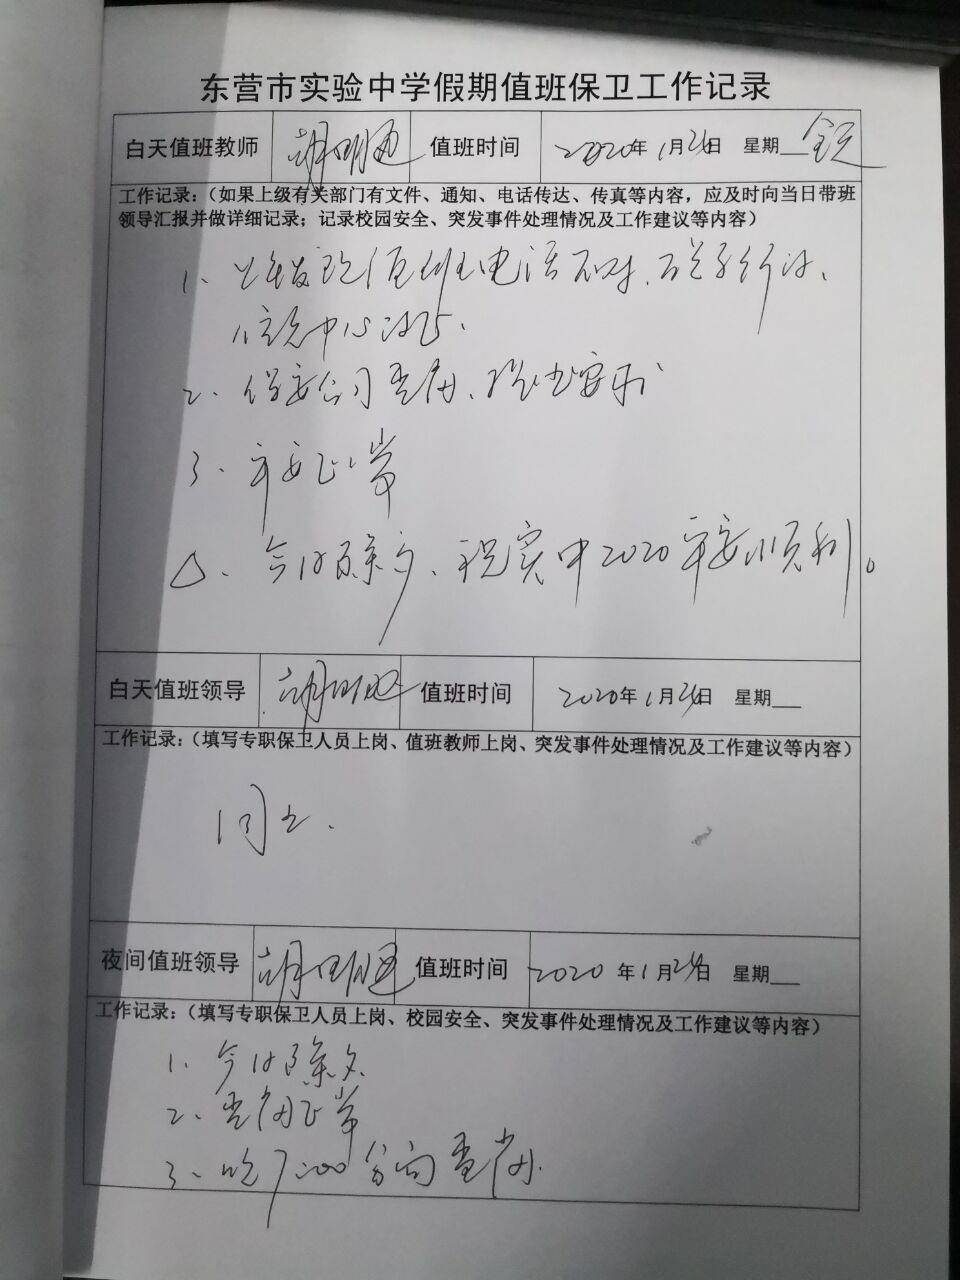 东营市实验中学假期值班保卫工作记录
白天值班教师 胡明 值班时间 2020年1月24日 星期__ 全天
工作记录：（如果上级有关部门有文件、通知、电话传达、传真等内容，应及时向当日带班
领导汇报并做详细记录；记录校园安全、突发事件处理情况及工作建议等内容）
1、 值班电话
中心
2、保安公司查岗、提出要求
3、平安正常
4、今日除夕、祝实中2020平安顺利。
白天值班领导 胡明 值班时间 2020年1月24日 星期__
工作记录：（填写专职保卫人员上岗、值班教师上岗、突发事件处理情况及工作建议等内容）
同上.
夜间值班领导 胡明 值班时间 2020年1月24日 星期__
工作记录：（填写专职保卫人员上岗、校园安全、突发事件处理情况及工作建议等内容）
1、今日除夕
2、 正常
3、晚7:00 查岗.